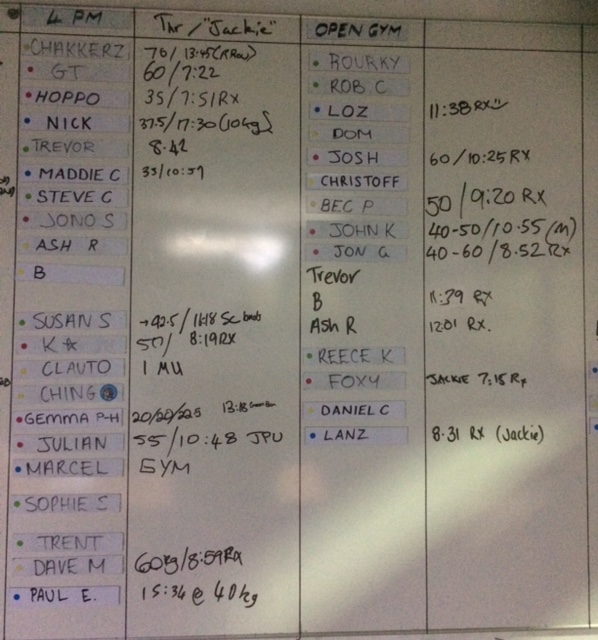 4 PM Thr/"Jackie" OPEN GYM
CHAKKERZ 70/13:45 (RRow) ROURKY
GT 60/7:22 ROB C
HOPPO 35/7:51 RX LOZ 11:38 RX
NICK 37.5/7:30 (10kg) DOM
TREVOR 8.42 JOSH 60/10:25 RX
MADDIE C 35/10:57 CHRISTOFF
STEVE C BEC P 50/9:20 RX
JONO S JOHN K 40-50/10.55 (M)
ASH R JON G 40-60/8.52 RX
B Trevor
B 11:39 RX
SUSAN S 42.5/11:18 Sc bands Ash R 12:01 RX.
K 50/ 8:19 RX REECE K
CLAUTO 1 MU FOXY JACKIE 7:15 Rx
CHING
GEMMA P-H 20/20/22.5 13:18 DANIEL C
JULIAN 55/10:48 JPU LANZ 8.31 RX (Jackie)
MARCEL GYM
SOPHIE S
TRENT
DAVE M 60kg/8:59 RX
PAUL E. 15:34 @ 40kg